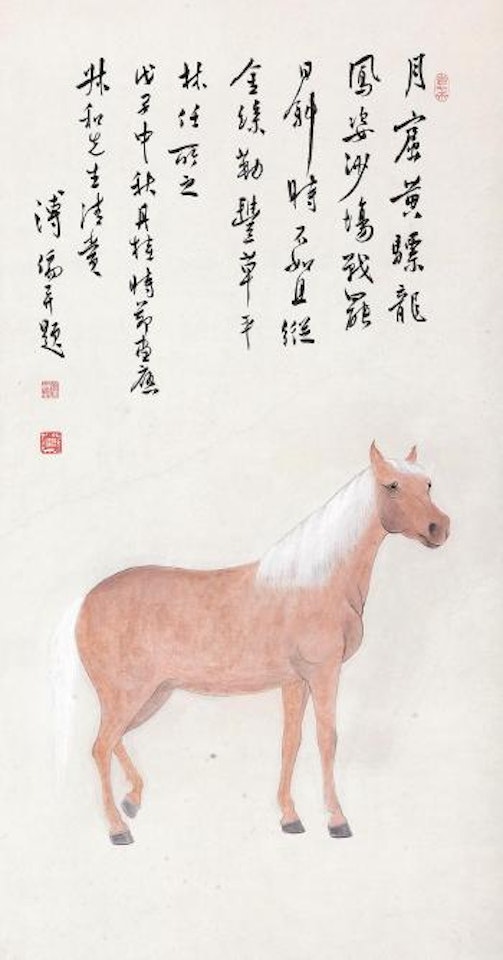 月窟黄驃龍
鳳姿沙場戰罷
日斜時不如且縱
金絲勒豐草平
林任所之
戊子中秋丹桂時節画應
叔和先生清賞
溥僩并題